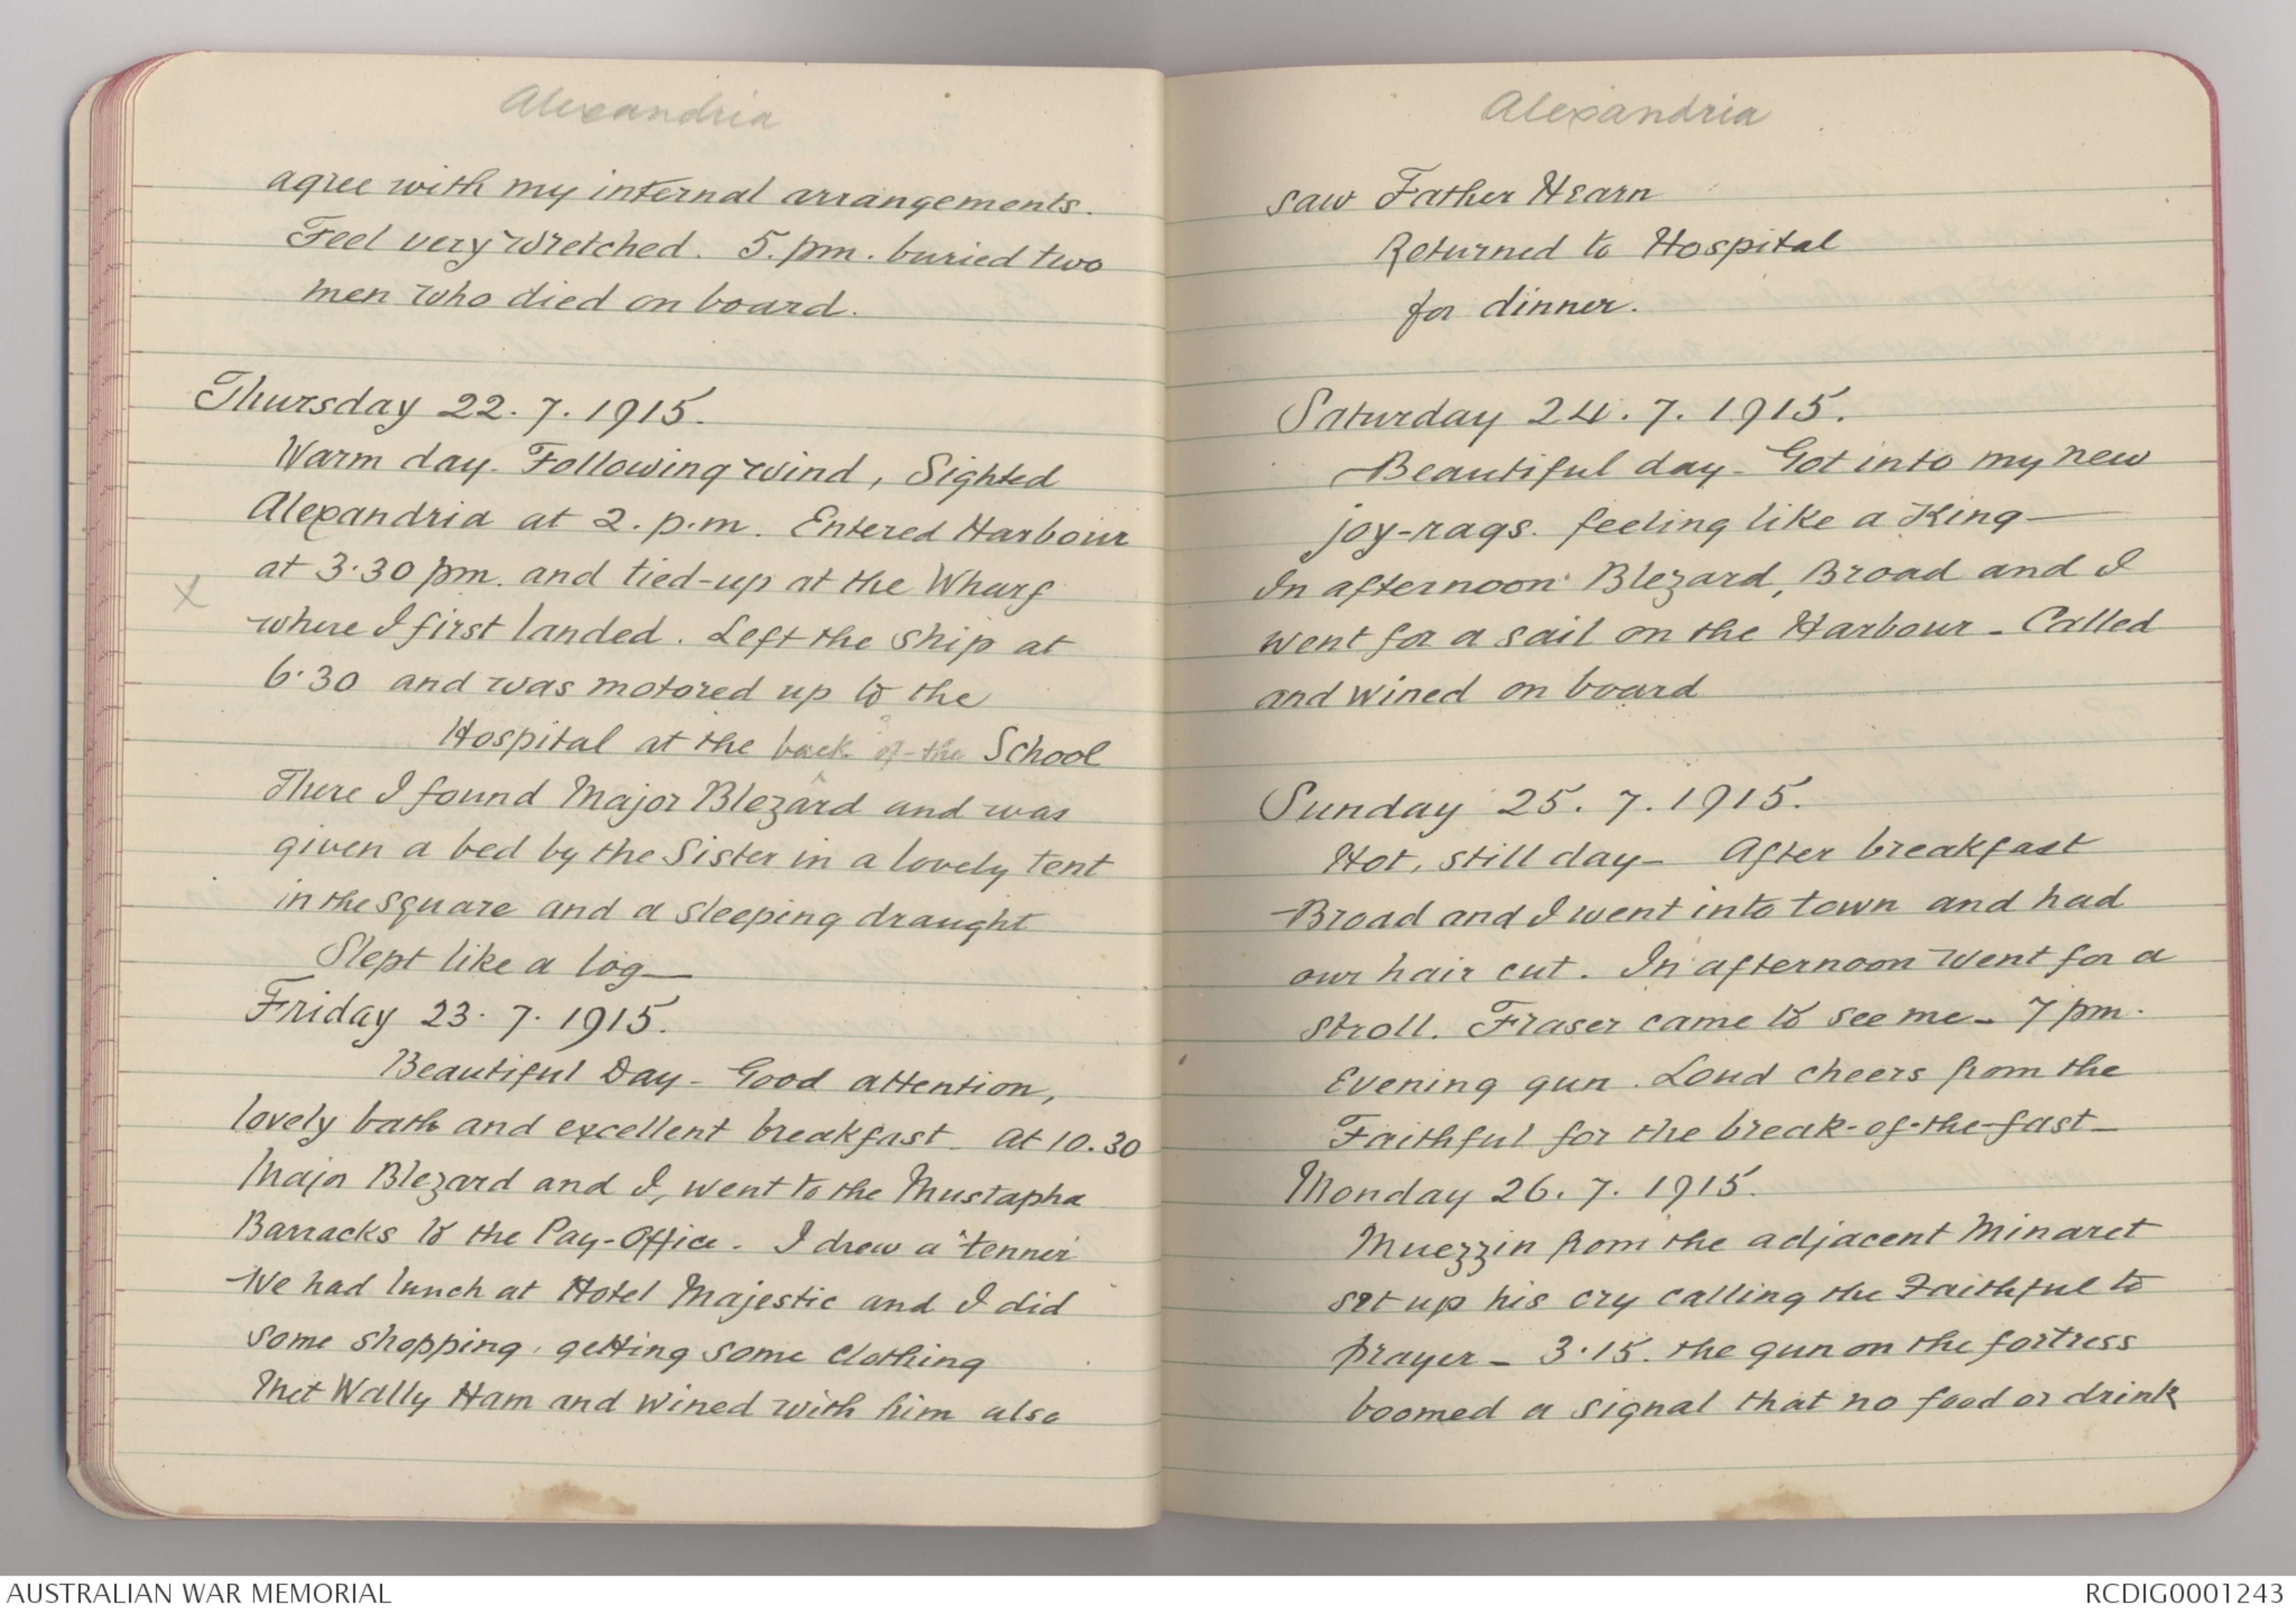 Alexandria
agree with my internal arrangements.
Feel very wretched. 5.pm. buried two
men who died on board.
Thursday 22.7.1915.
Warm day. Following wind, Sighted
Alexandria at 2.p.m. Entered Harbour
at 3.30 pm. and tied-up at the Wharf
X
where I first landed. Left the ship at
6.30 and was motored up to the
Hospital at the back of the School
There I found Major Blezard and was
given a bed by the Sister in a lovely tent
in the square and a sleeping draught
Slept like a log—
Friday 23.7.1915.
Beautiful Day - Good attention,
lovely bath and excellent breakfast. At 10.30
Major Blezard and I, went to the Mustapha
Barracks to the Pay-Office. I drew a "tenner"
We had lunch at Hotel Majestic and I did
some shopping, getting some clothing
Met Wally Ham and wined with him also
Alexandria
saw Father Hearn
Returned to Hospital
for dinner.
Saturday 24.7.1915.
Beautiful day - Got into my new
joy-rags. feeling like a King—
In afternoon Blezard, Broad and I
went for a sail on the Harbour - Called
and wined on board
Sunday 25.7.1915.
Hot, still day - After breakfast
Broad and I went into town and had
our hair cut. In afternoon went for a
stroll. Fraser came to see me - 7 pm.
Evening gun. Loud cheers from the
Faithful for the break-of-the-fast—
Monday 26.7.1915.
Muezzin from the adjacent Minaret
set up his cry calling the Faithful to
prayer - 3.15. the gun on the fortress
boomed a signal that no food or drink
AUSTRALIAN WAR MEMORIAL
RCDIG0001243